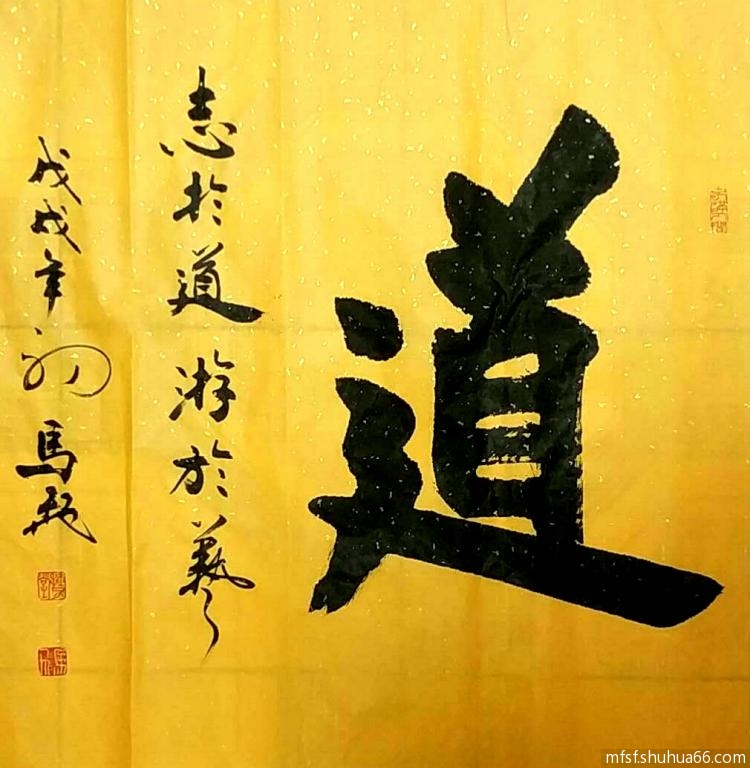 道
志於道游於藝
戊戌年初馬
mfsf.shuhua66.com